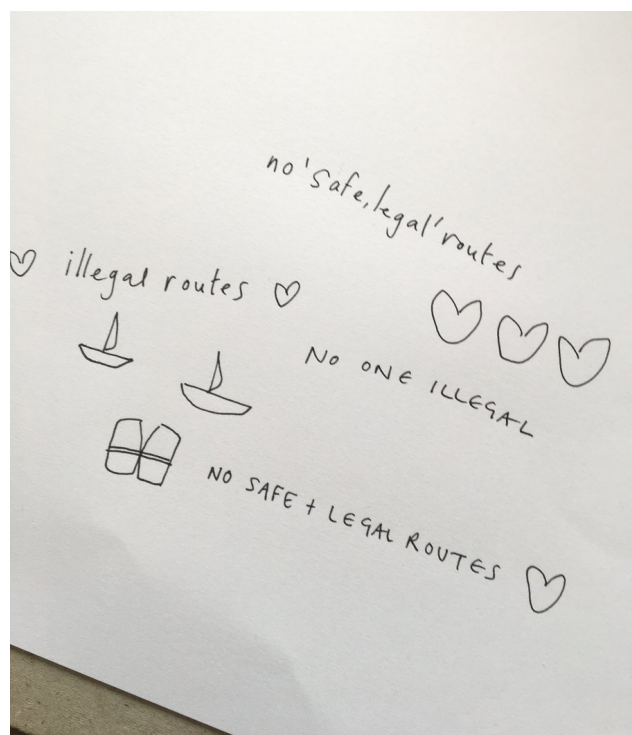 no 'safe, legal' routes
illegal routes
NO ONE ILLEGAL
NO SAFE + LEGAL ROUTES